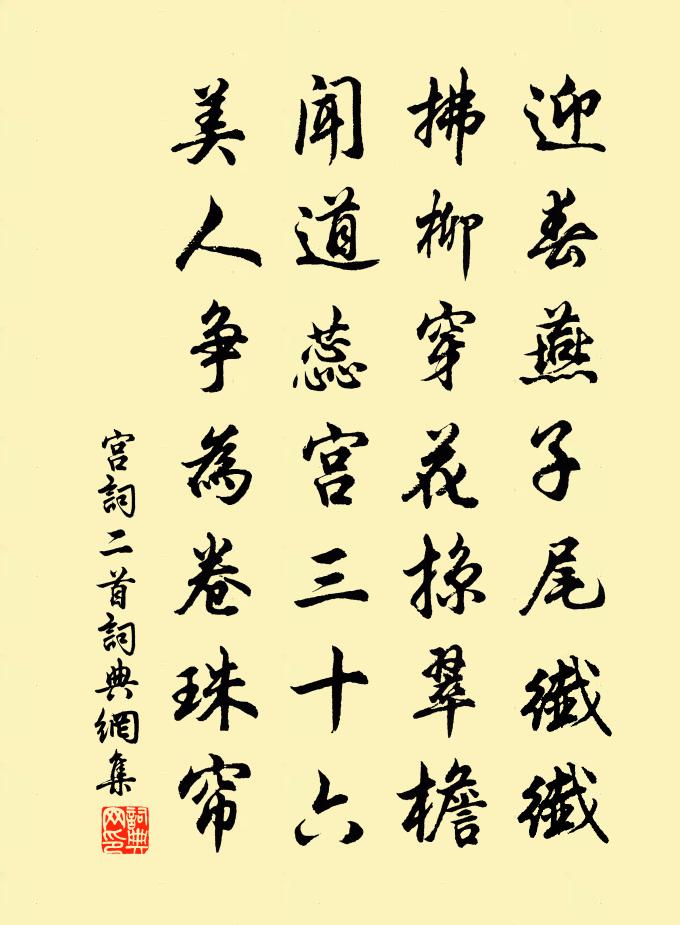 迎春燕子尾纖纖
拂柳穿花掠翠檐
聞道蕊宫三十六
美人争為卷珠帘
宫詞二首詞典網集
詞典網印